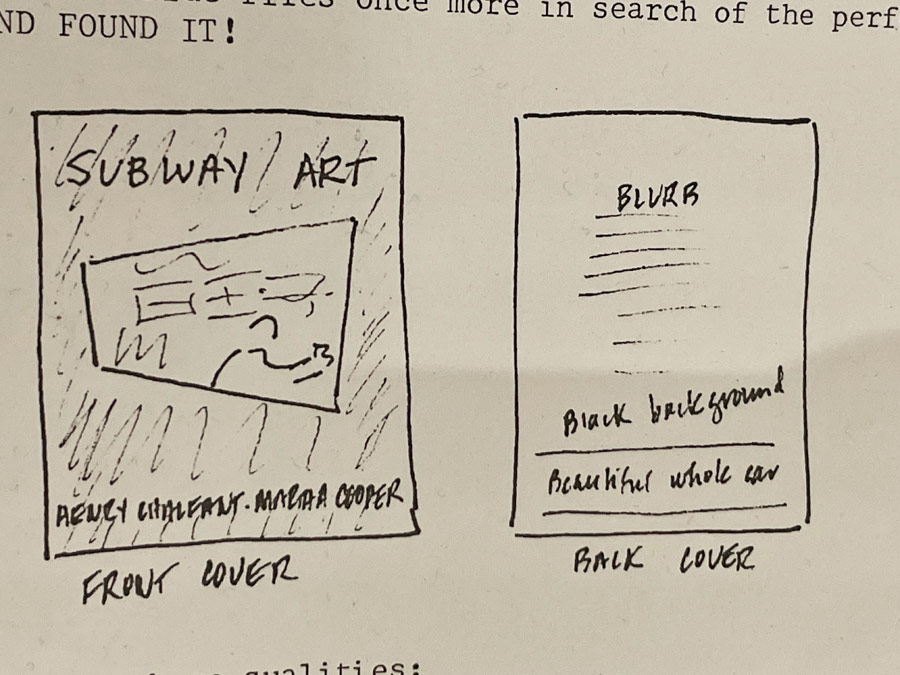 files once more in search of the perf
ND FOUND IT!
SUBWAY ART
HENRY CHALFANT. MARTHA COOPER
FRONT COVER
BLURB
Black background
Beautiful whole car
BACK COVER
qualities: